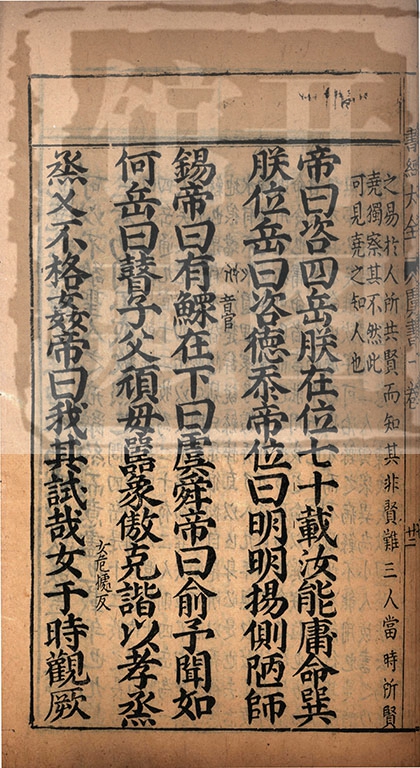 之易於人所共賢而知其非賢難三人當時所賢
堯獨察其不然此
可見堯之知人也
帝曰咨四岳朕在位七十載汝能庸命巽
朕位岳曰咨德忝帝位曰明明揚側陋師
錫帝曰有鰥在下曰虞舜帝曰俞予聞如
音官
何岳曰瞽子父頑母嚚象傲克諧以孝烝
烝乂不格姦帝曰我其試哉女于時觀厥
女危慮反